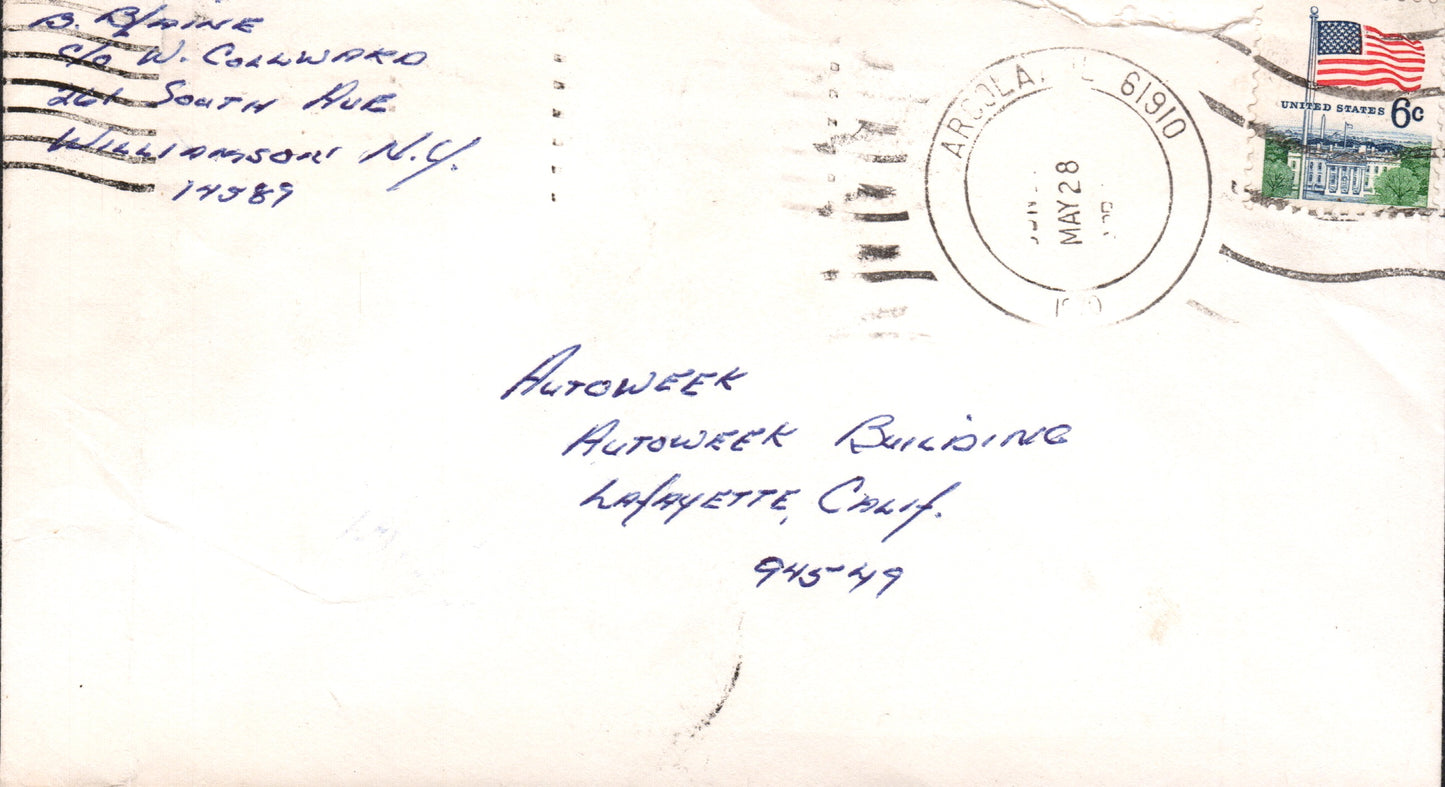 B. Blaine
c/o W. Collward
261 South Ave
Williamson N.Y.
14589
ARCOLA, IL 61910
MAY 28
UNITED STATES 6c
Autoweek
Autoweek Building
Lafayette, Calif.
94549